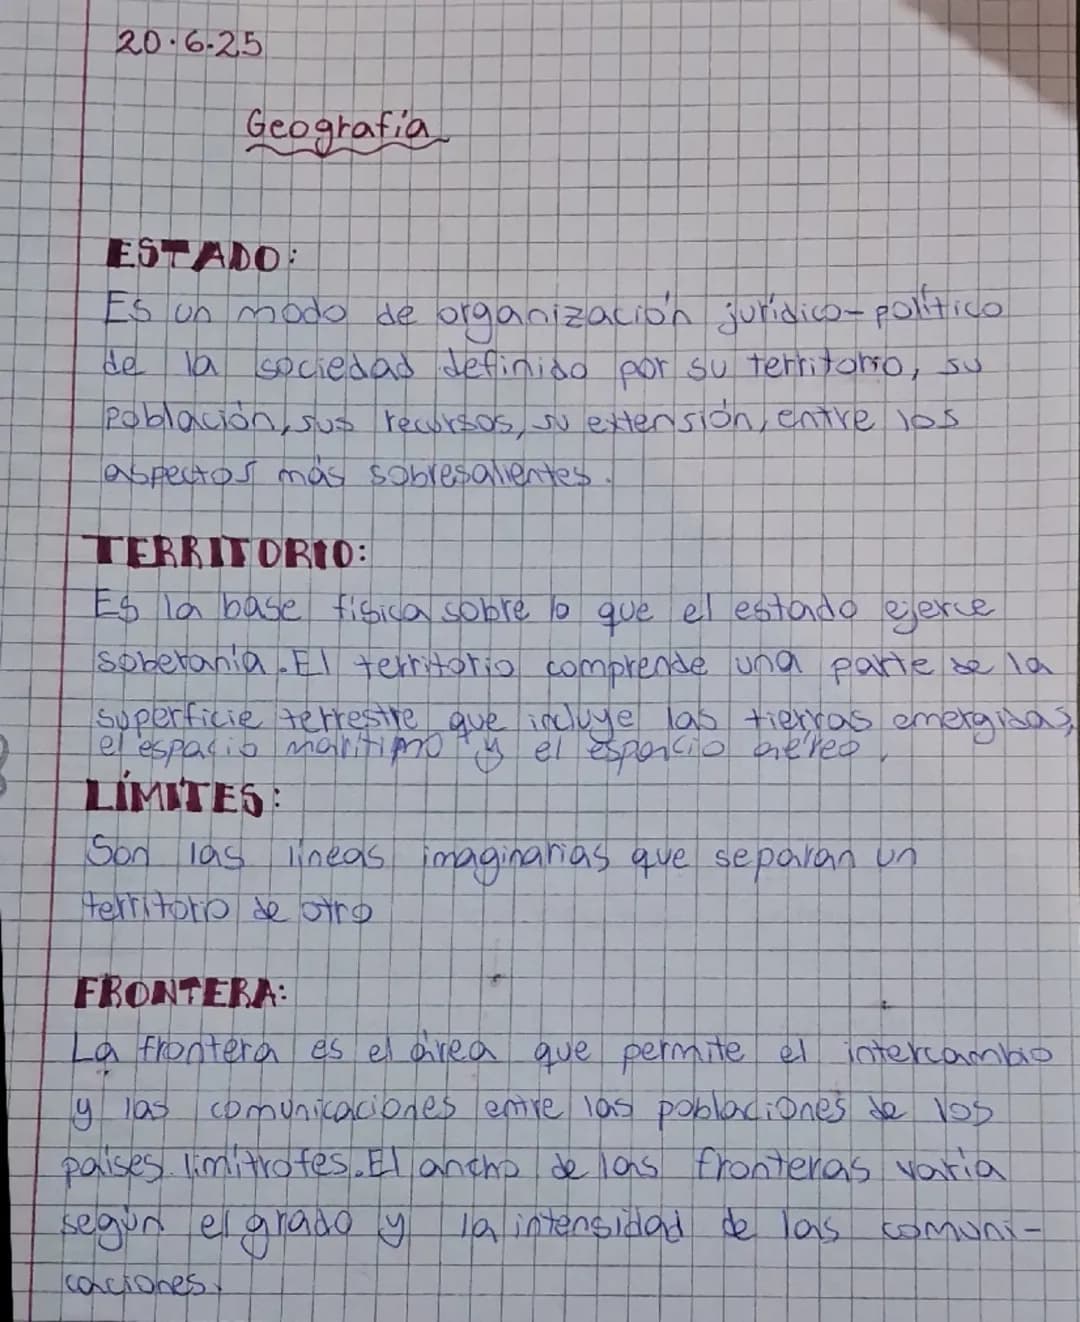 20.6.25
Geografía
ESTADO:
Es un modo de organización jurídico-político
de la sociedad definido por su territorio, su
población, sus recursos, su extensión, entre los
aspectos más sobresalientes.
TERRITORIO:
Es la base física sobre lo que el estado ejerce
soberanía. El territorio comprende una parte de la
superficie terrestre que incluye las tierras emergidas,
el espacio marítimo y el espacio aéreo.
LÍMITES:
Son las líneas imaginarias que separan un
territorio de otro
FRONTERA:
La frontera es el área que permite el intercambio
y las comunicaciones entre las poblaciones de los
países limítrofes. El ancho de las fronteras varía
según el grado y la intensidad de las comuni-
caciones.